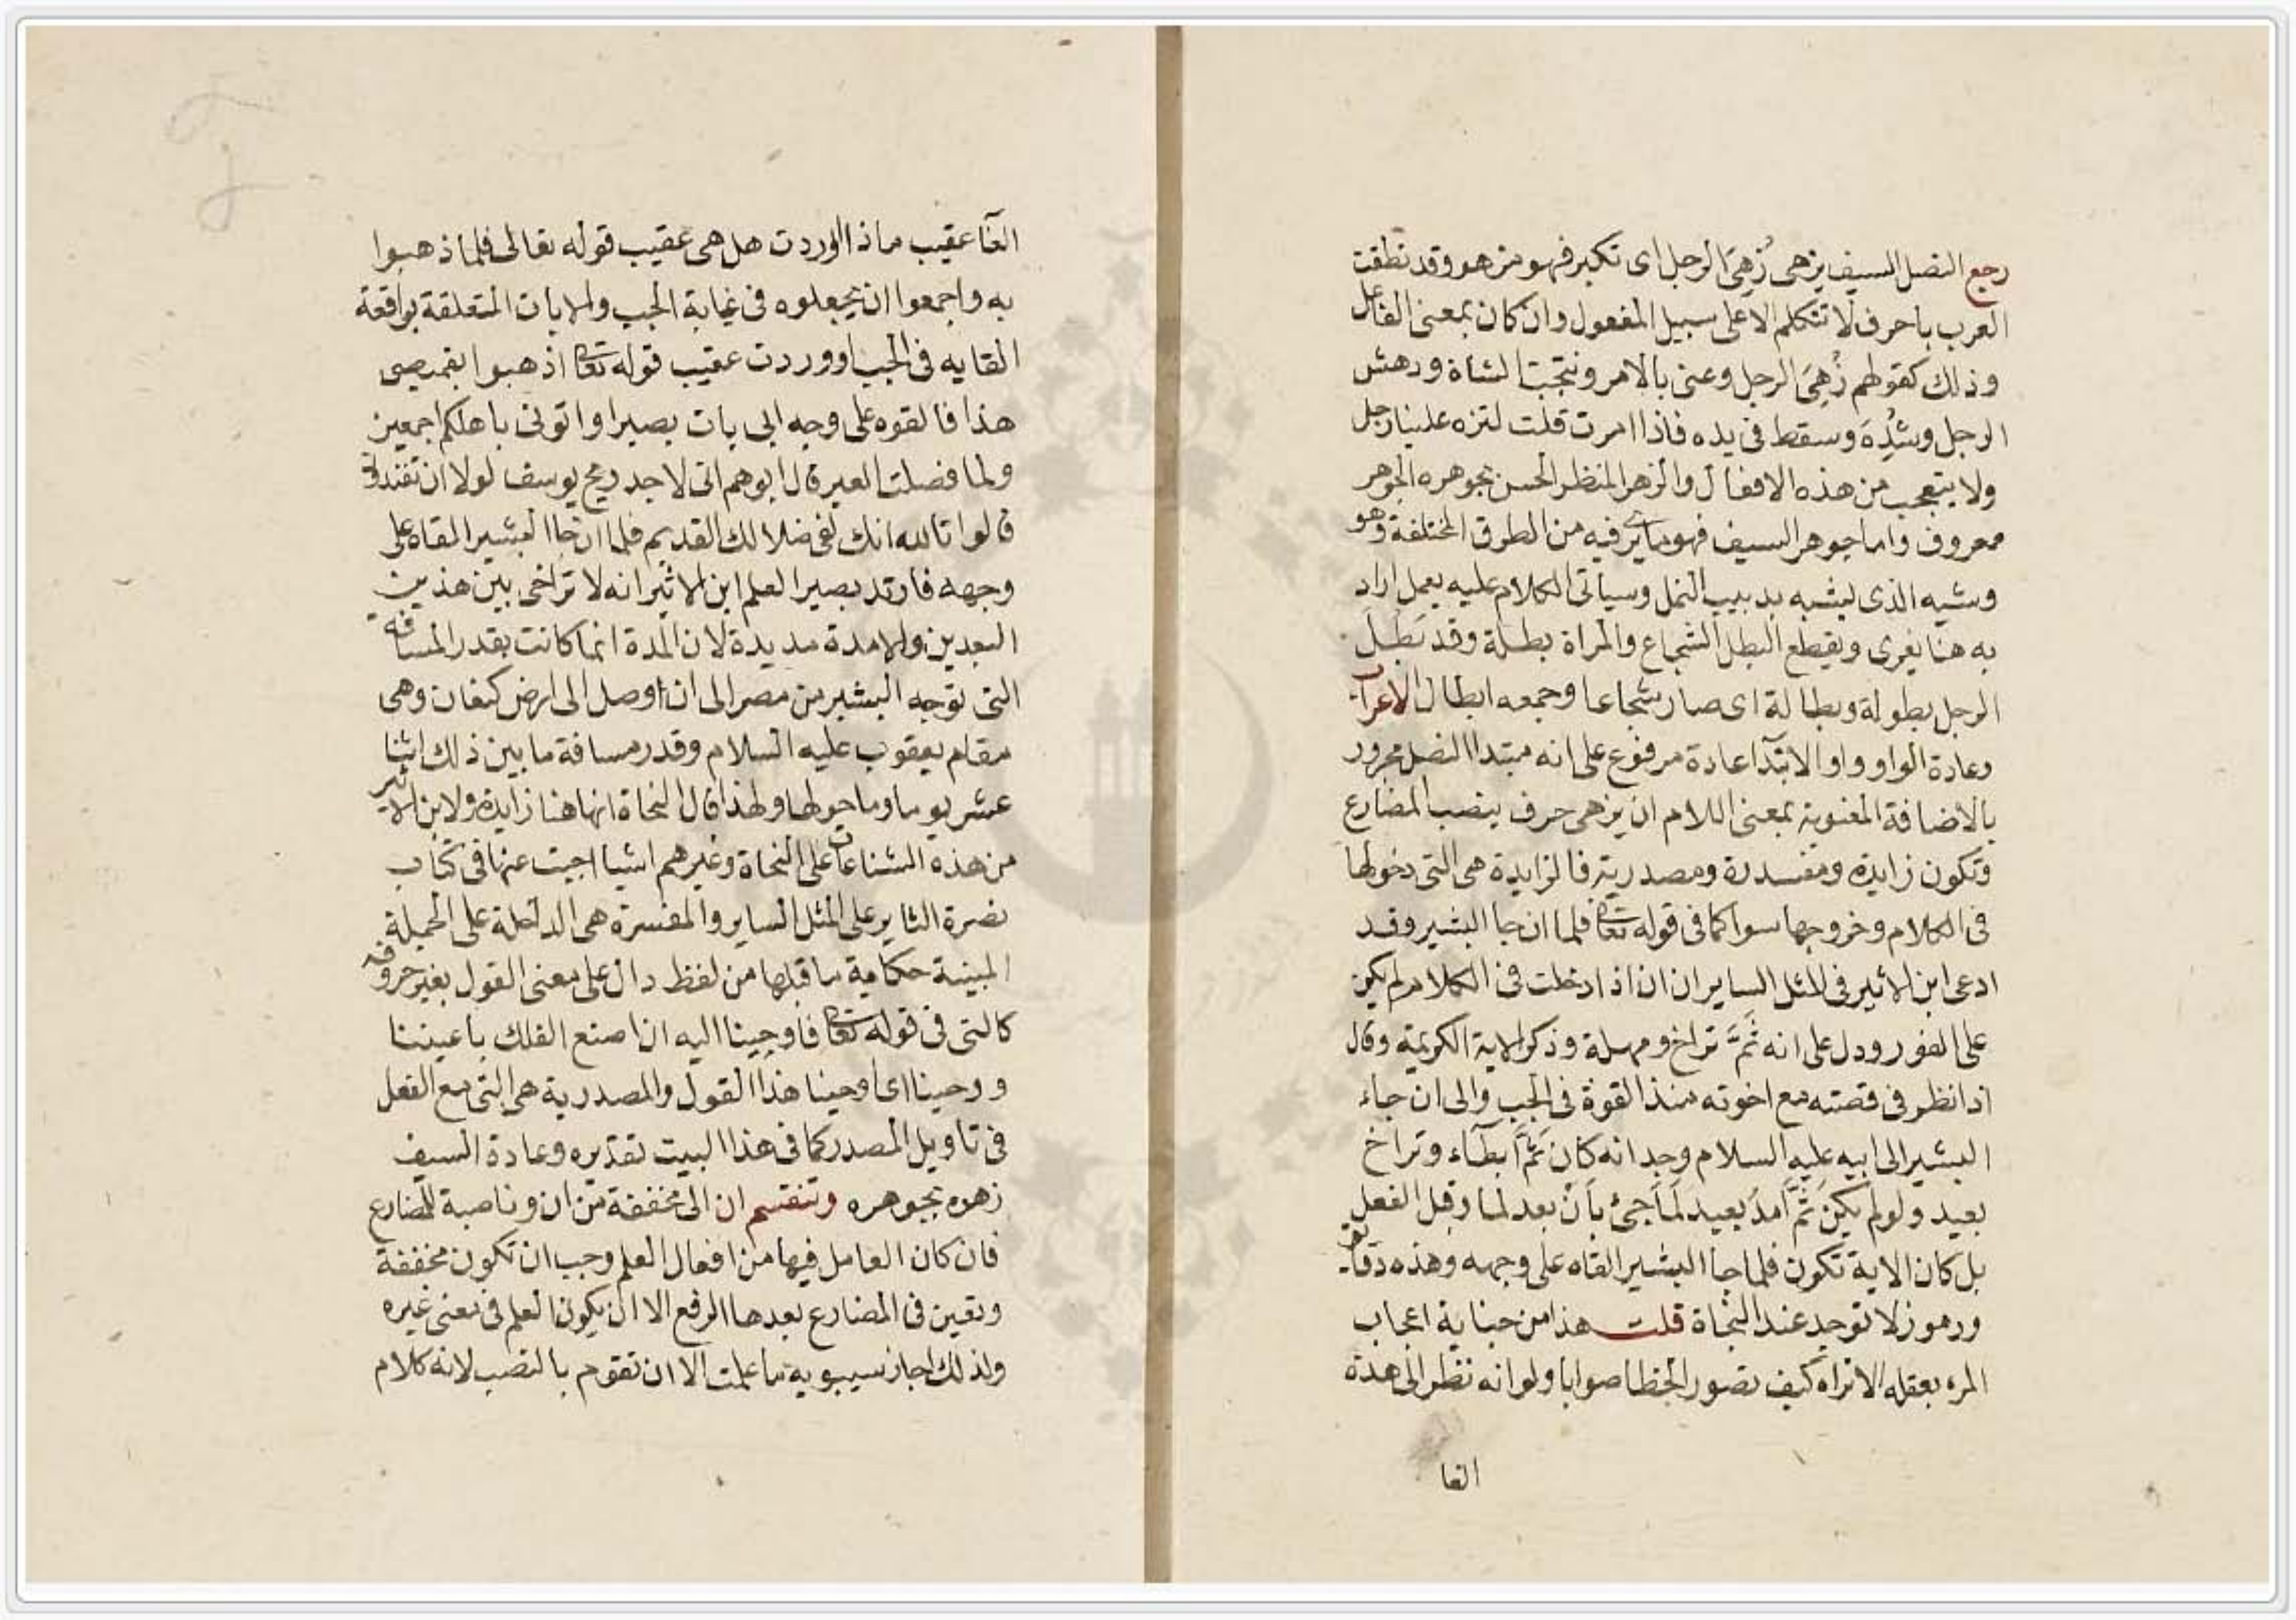 رجع النصل السيف يزهى زُهِىَ الرجل اى تكبر فهو مزهو وقد نطقت
العرب باحرف لا تتكلم الا على سبيل المفعول وان كان بمعنى الفاعل
وذلك كقولهم زُهِىَ الرجل وعنى بالامر ونتجت الشاة ودهش
الرجل وشُدِهَ وسقط فى يده فاذا امرت قلت لتزه علينا رجل
ولا يتعجب من هذه الافعال والزهر المنظر الحسن بجوهره الجوهر
معروف واما جوهر السيف فهو ما يرى فيه من الطرق المختلفة وهو
وشيه الذى يشبه بدبيب النمل وسياتى الكلام عليه يعمل اراد
به هنا يفرى ويقطع البطل الشجاع والمراة بطلة وقد بَطُلَ
الرجل بطولة وبطالة اى صار شجاعا وجمعه ابطال الاعراب
وعادة الواو واو الابتدآ عادة مرفوع على انه مبتدا النصل مجرور
بالاضافة المعنوية بمعنى اللام ان يزهى حرف ينصب المضارع
وتكون زايدة ومفسدرة ومصدرية فالزايدة هى التى دخولها
فى الكلام وخروجها سوا كما فى قوله تعا فلما ان جا البشير وقد
ادعى ابن الاثير فى المثل الساير ان ان اذا دخلت فى الكلام لم يكن
على الفور ودل على انه ثَمَّ تراخ ومهلة وذكر الاية الكريمة وقال
اذا نظر فى قصته مع اخوته منذ القوة فى الجب والى ان جاء
البشير الى ابيه عليه السلام وجد انه كان ثَمَّ ابطآء وتراخ
بعيد ولو لم يكن ثَمَّ امدَ بعيد لَمَا جئ بَانْ بعد لما وقبل الفعل
بل كان الاية تكون فلما جا البشير القاه على وجهه وهذه دقايق
ورموز لا توجد عند النحاة قلت هذا من جناية اعجاب
المرء بعقله الا تراه كيف تصور الخطا صوابا ولو انه نظر الى هذة
الفا
الفآ عقيب ماذا اوردت هل هى عقيب قوله تعالى فلما ذهبوا
به واجمعوا ان يجعلوه فى غيابة الجب والايات المتعلقة بواقعة
القايه فى الجب او وردت عقيب قوله تعا اذهبوا بقميصى
هذا فالقوه على وجه ابى يات بصيرا واتونى باهلكم اجمعين
ولما فصلت العير قال ابوهم انى لاجد ريح يوسف لولا ان تفندونى
قالوا تالله انك لفى ضلالك القديم فلما ان جا البشير القاه على
وجهه فارتد بصيرا لعلم ابن الاثير انه لا تراخى بين هذين
البعدين ولا مدة مديدة لان المدة انما كانت بقدر المسافة
التى توجه البشير من مصر الى ان اوصل الى ارض كنعان وهى
مقام يعقوب عليه السلام وقدر مسافة ما بين ذلك اثنا
عشر يوما وما حولها ولهذا قال النحاة انها هنا زايدة ولابن الاثير
من هذه الشناعات على النحاة وغيرهم اشيا اجبت عنها فى كتاب
نصرة الثاير على المثل الساير والمفسرة هى الداخلة على الجملة
المبينة حكاية ما قبلها من لفظ دال على معنى القول بغير حروفه
كالتى فى قوله تعا فاوحينا اليه ان اصنع الفلك باعيننا
ووحينا اى اوحينا هذا القول والمصدرية هى التى مع الفعل
فى تاويل المصدر كما فى هذا البيت تقديره وعادة السيف
زهوه بجوهره وتنقسم ان الى مخففة من ان وناصبة للمضارع
فان كان العامل فيها من افعال العلم وجب ان تكون مخففة
وتعين فى المضارع بعدها الرفع الا ان يكون العلم فى معنى غيره
ولذلك اجاز سيبويه ما علمت الا ان تقوم بالنصب لانه كلام